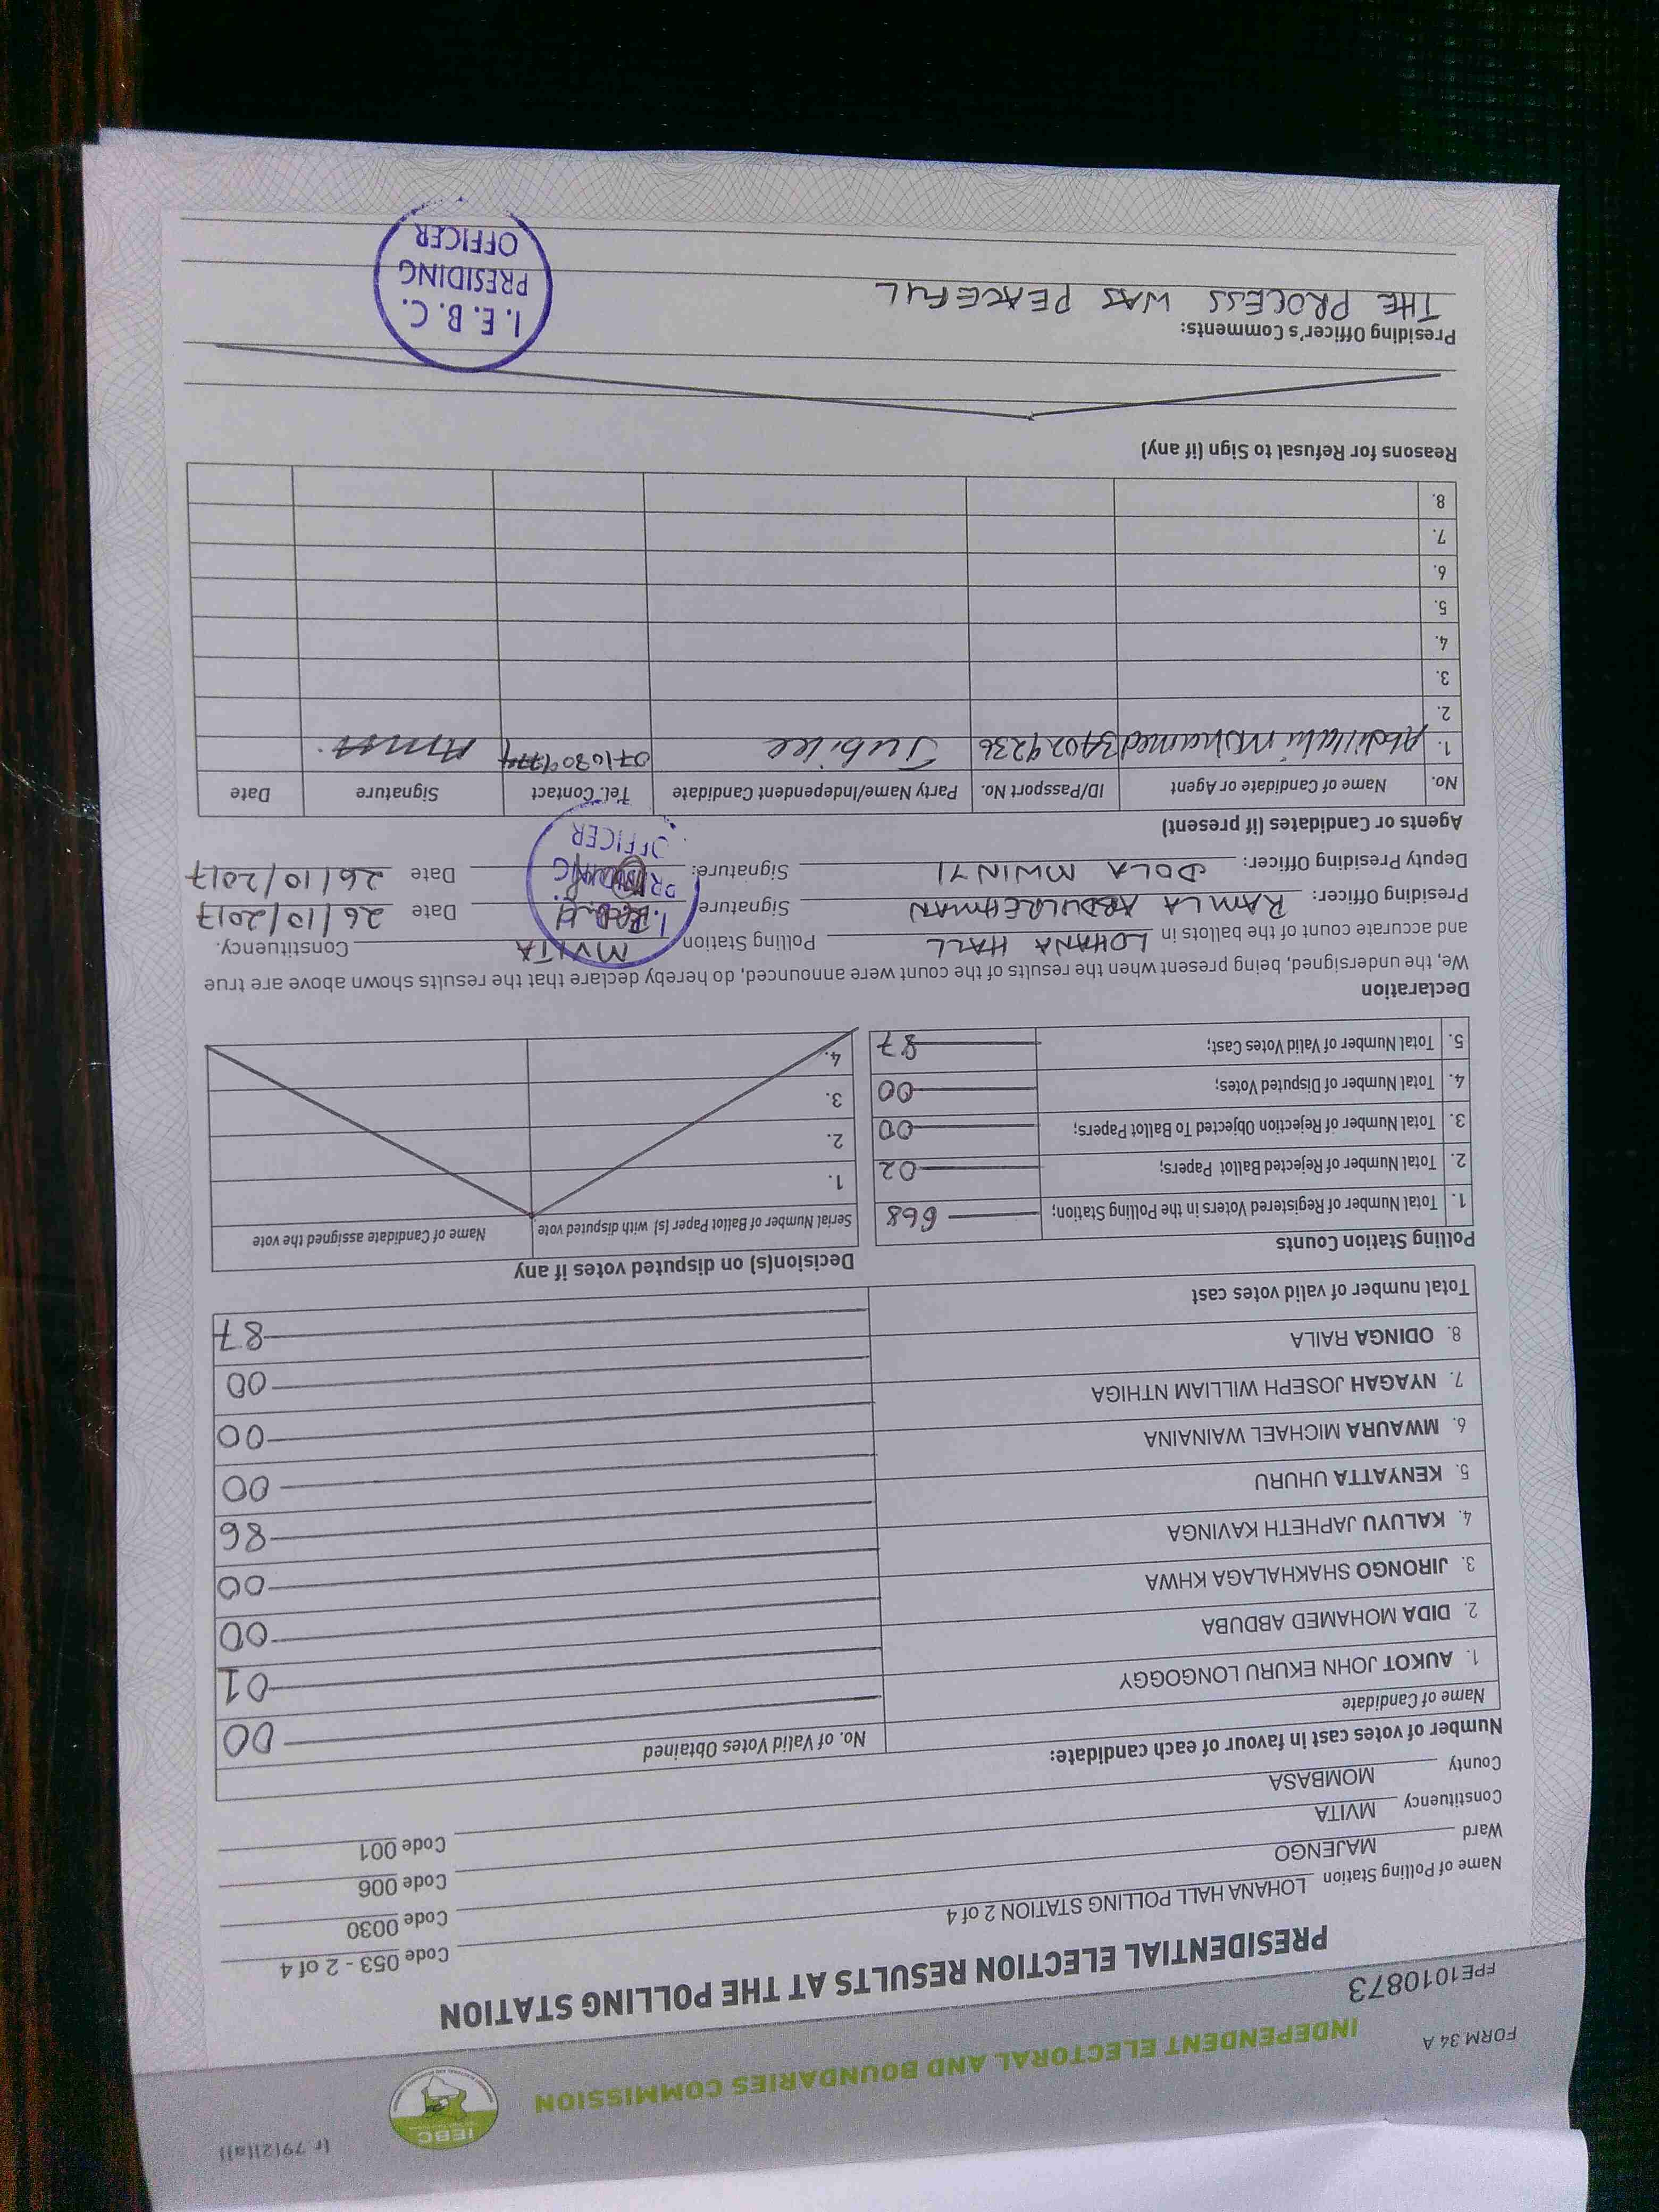 (r. 79(2)(a))
IEBC
FORM 34 A
INDEPENDENT ELECTORAL AND BOUNDARIES COMMISSION
FPE1010873
PRESIDENTIAL ELECTION RESULTS AT THE POLLING STATION
Name of Polling Station LOHANA HALL POLLING STATION 2 of 4 Code 053 - 2 of 4
Ward MAJENGO Code 0030
Constituency MVITA Code 006
County MOMBASA Code 001
Number of votes cast in favour of each candidate:
Name of Candidate No. of Valid Votes Obtained
1. AUKOT JOHN EKURU LONGOGGY 00
2. DIDA MOHAMED ABDUBA 01
3. JIRONGO SHAKHALAGA KHWA 00
4. KALUYU JAPHETH KAVINGA 00
5. KENYATTA UHURU 86
6. MWAURA MICHAEL WAINAINA 00
7. NYAGAH JOSEPH WILLIAM NTHIGA 00
8. ODINGA RAILA 00
Total number of valid votes cast 87
Polling Station Counts
1. Total Number of Registered Voters in the Polling Station; 668
2. Total Number of Rejected Ballot Papers; 02
3. Total Number of Rejection Objected To Ballot Papers; 00
4. Total Number of Disputed Votes; 00
5. Total Number of Valid Votes Cast; 87
Decision(s) on disputed votes if any
Serial Number of Ballot Paper (s) with disputed vote Name of Candidate assigned the vote
1.
2.
3.
4.
Declaration
We, the undersigned, being present when the results of the count were announced, do hereby declare that the results shown above are true
and accurate count of the ballots in LOHANA HALL Polling Station MVITA Constituency.
Presiding Officer: RAMLA ABDULREHMAN Signature: Date 26/10/2017
Deputy Presiding Officer: DOLA MWINYI Signature: Date 26/10/2017
OFFICER
Agents or Candidates (if present)
No. Name of Candidate or Agent ID/Passport No. Party Name/Independent Candidate Tel. Contact Signature Date
1. Abdillahi Mohamed 34029236 Jubilee
2.
3.
4.
5.
6.
7.
8.
Reasons for Refusal to Sign (if any)
Presiding Officer's Comments:
THE PROCESS WAS PEACEFUL
I.E.B.C.
PRESIDING
OFFICER